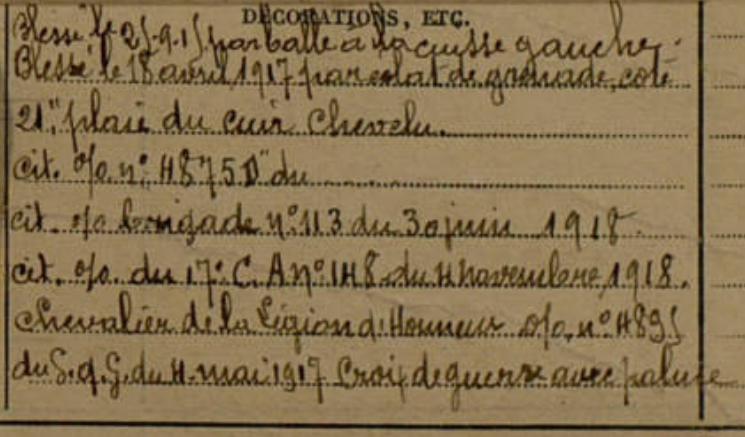 DÉCORATIONS, ETC.
Blessé le 25-9-15 par balle à la cuisse gauche.
Blessé le 18 avril 1917 par eclat de grenade, coté
21", plaie du cuir chevelu.
cit. o/o. n°: 4875 D" du
cit. o/o brigade n° 113 du 30 juin 1918.
cit. o/o. du 17e C. A n° 148 du 4 novembre 1918.
Chevalier de la Légion d'Honneur o/o, n° 4895
du G.q.G. du 4 mai 1917 Croix de guerre avec palme